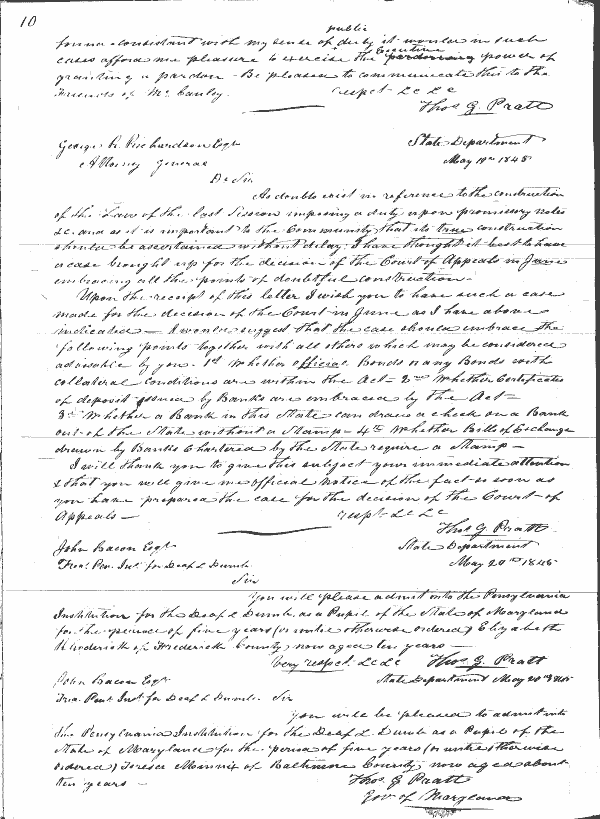 10
public
former consistent with my sense of duty it would in such
Executive
cases afford me pleasure to exercise the pardoning power of
granting a pardon - Be pleased to communicate this to the
Friends of Mr Cauley. respct &c &c
Thos G. Pratt
George R. Richardson Esqr State Department
Attorney General May 19th 1845
Dr Sir
As doubts exist in reference to the construction
of the Law of the last Session imposing a duty upon promissory notes
&c. and as it is important to the Community that its true construction
should be ascertained without delay; I have thought it best to have
a case brought up for the decision of the Court of Appeals in June
embracing all the points of doubtful construction.
Upon the receipt of this letter I wish you to have such a case
made for the decision of the Court in June as I have above
indicated - I would suggest that the case should embrace the
following points together with all others which may be considered
advisable by you. 1st Whether official Bonds or any Bonds with
collateral conditions are within the Act - 2nd Whether Certificates
of deposit issued by Banks are embraced by the Act -
3rd Whether a Bank in this State can draw a check on a Bank
out of the State without a Stamp - 4th Whether Bills of Exchange
drawn by Banks Chartered by the State require a Stamp -
I will thank you to give this subject your immediate attention
& that you will give me official notice of the fact as soon as
you have prepared the case for the decision of the Court of
Appeals - respt &c &c
Thos G Pratt
John Bacon Esqr State Department
Trea. Pen. Inst. for Deaf & Dumb. May 20th 1845
Sir
You will please admit into the Pensylvania
Institution for the Deaf & Dumb as a Pupil of the State of Maryland
for the period of five years (or until otherwise ordered) Elizabeth
of Frederick County, now aged ten years -
Very respct &c &c Thos G. Pratt
John Bacon Esqr State Department May 20th 1845
Trea. Pen. Inst for Deaf & Dumb. Sir
You will be pleased to admit into
the Pensylvania Institution for the Deaf & Dumb as a Pupil of the
State of Maryland for the period of five years (or until otherwise
ordered) Teresa of Baltimore County, now aged about
ten years - Thos. G Pratt
Gov of Maryland